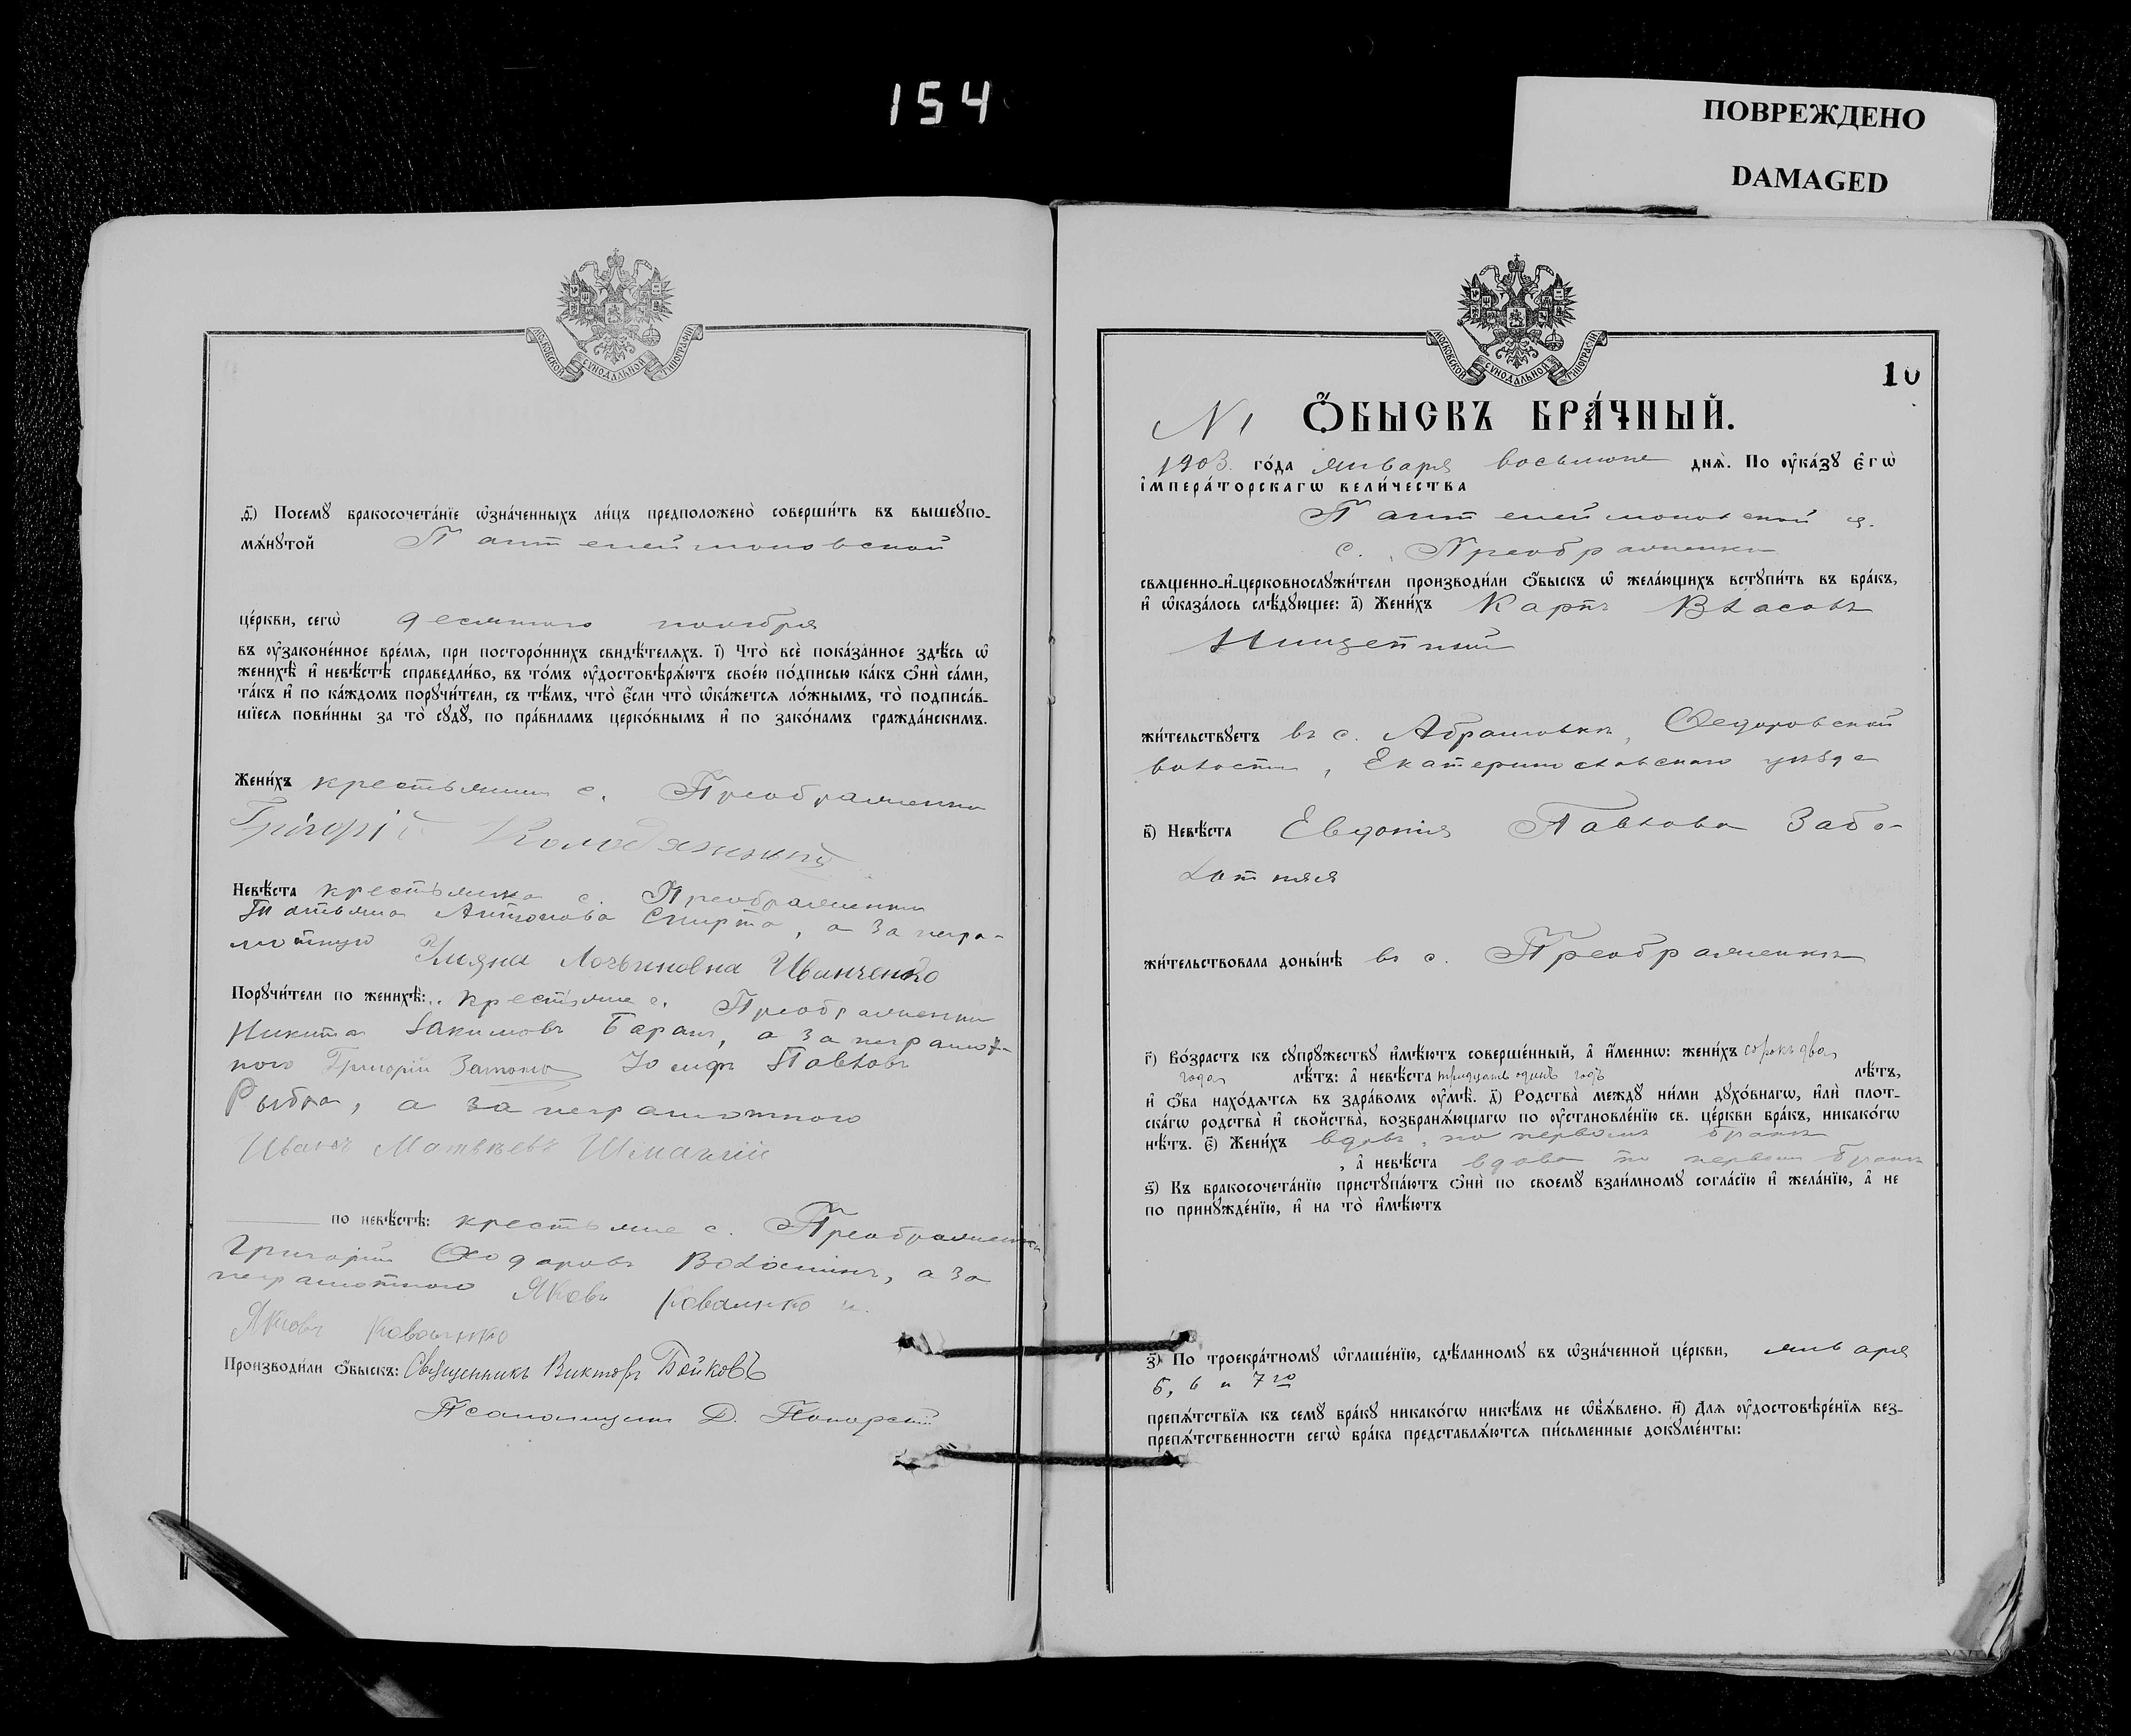 154
ПОВРЕЖДЕНО
DAMAGED
МОСКОВСКОЙ СѴНОДАЛЬНОЙ ТИПОГРАФІИ
ѳ҃) Посемꙋ̀ бракосочета́нїе ѡ҆зна́ченныхъ ли́цъ предположено̀ соверши́ть въ вышеꙋпо-
мѧ́нꙋтой Пантелеймоновской
це́ркви, сегѡ̀ десятого ноября
въ ᲂу҆законе́нное вре́мѧ, при посторо́ннихъ свидѣ́телѧхъ. і҃) Что̀ всѐ пока́занное здѣ́сь ѡ҆
женихѣ̀ и҆ невѣ́стѣ справедли́во, въ то́мъ ᲂу҆достовѣрѧ́ютъ свое́ю по́дписью ка́къ ѻ҆нѝ са́ми,
та́къ и҆ по ка́ждомъ порꙋчи́тели, съ тѣ́мъ, что̀ є҆́сли что̀ ѡ҆ка́жетсѧ ло́жнымъ, то̀ подписа́в-
шїесѧ пови́нны за то̀ сꙋдꙋ̀, по пра́виламъ церко́внымъ и҆ по зако́намъ гражда́нскимъ.
Жени́хъ крестьянин с. Преображенки
Григорій Колодяжный
Невѣ́ста крестьянка с. Преображенки
Татьяна Антонова Спирта, а за негра-
мотную Ульяна Логвиновна Иванченко
Порꙋчи́тели по женихѣ̀: крестьяне с. Преображенки
Никита Іакимовъ Баранъ, а за неграмот-
ного Григорій Іосифъ Павловъ
Рыбка, а за неграмотного
Иванъ Матвѣевъ
по невѣ́стѣ: крестьяне с. Преображенки
Григорій Ѳедоровъ Волошинъ, а за
неграмотного Яковъ Коваленко и
Яковъ Коваленко
Производи́ли ѻ҆́быскъ: Священникъ Викторъ Бойковъ
Псаломщикъ Д. Понорскій
МОСКОВСКОЙ СѴНОДАЛЬНОЙ ТИПОГРАФІИ
10
N 1 Ѻ҆́БЫСКЪ БРА́ЧНЫЙ.
1903. го́да января восьмого днѧ̀. По ᲂу҆ка́зꙋ Є҆гѡ̀
І҆мпера́торскагѡ вели́чества
Пантелеймоновской ц.
с. Преображенки
свѧще́нно-и҆-церковнослꙋжи́тели производи́ли ѻ҆́быскъ ѡ҆ жела́ющихъ встꙋпи́ть въ бра́къ,
и҆ ѡ҆каза́лось слѣ́дꙋющее: а҃) Жени́хъ Карпъ Власовъ
Нищепный
жи́тельствꙋетъ въ с. Абрамовкѣ, Ѳедоровской
волости, Екатеринославского уѣзда
в҃) Невѣ́ста Евдокія Павлова Забо-
лотняя
жи́тельствовала доны́нѣ въ с. Преображенкѣ
г҃) Во́зрастъ къ сꙋпрꙋ́жествꙋ и҆мѣ́ютъ соверше́нный, а҆ и҆́менно: жени́хъ сорокъ два
года лѣ́тъ: а҆ невѣ́ста тридцать одинъ годъ лѣ́тъ,
и҆ ѻ҆́ба нахо́дѧтсѧ въ здра́вомъ ᲂу҆мѣ̀. д҃) Родства̀ междꙋ̀ ни́ми дꙋхо́внагѡ, и҆лѝ пло́т-
скагѡ родства̀ и҆ сво́йства, возбранѧ́ющагѡ по ᲂу҆становле́нїю св. це́ркви бра́къ, никако́гѡ
нѣ́тъ. є҃) Жени́хъ вдовъ, по первомъ бракѣ
, а҆ невѣ́ста вдова по первомъ бракѣ
ѕ҃) Къ бракосочета́нїю пристꙋпа́ютъ ѻ҆нѝ по своемꙋ̀ взаи́мномꙋ согла́сїю и҆ жела́нїю, а҆ не
по принꙋжде́нїю, и҆ на то̀ и҆мѣ́ютъ
з҃) По троекра́тномꙋ ѡ҆глаше́нїю, сдѣ́ланномꙋ въ ѡ҆зна́ченной це́ркви, января
5, 6 и 7го
препѧ́тствїѧ къ семꙋ̀ бра́кꙋ никако́гѡ никѣ́мъ не ѡ҆бъѧ́влено. и҃) Длѧ̀ ᲂу҆достовѣре́нїѧ без-
препѧ́тственности сегѡ̀ бра́ка представлѧ́ютсѧ пи́сьменные докꙋме́нты: